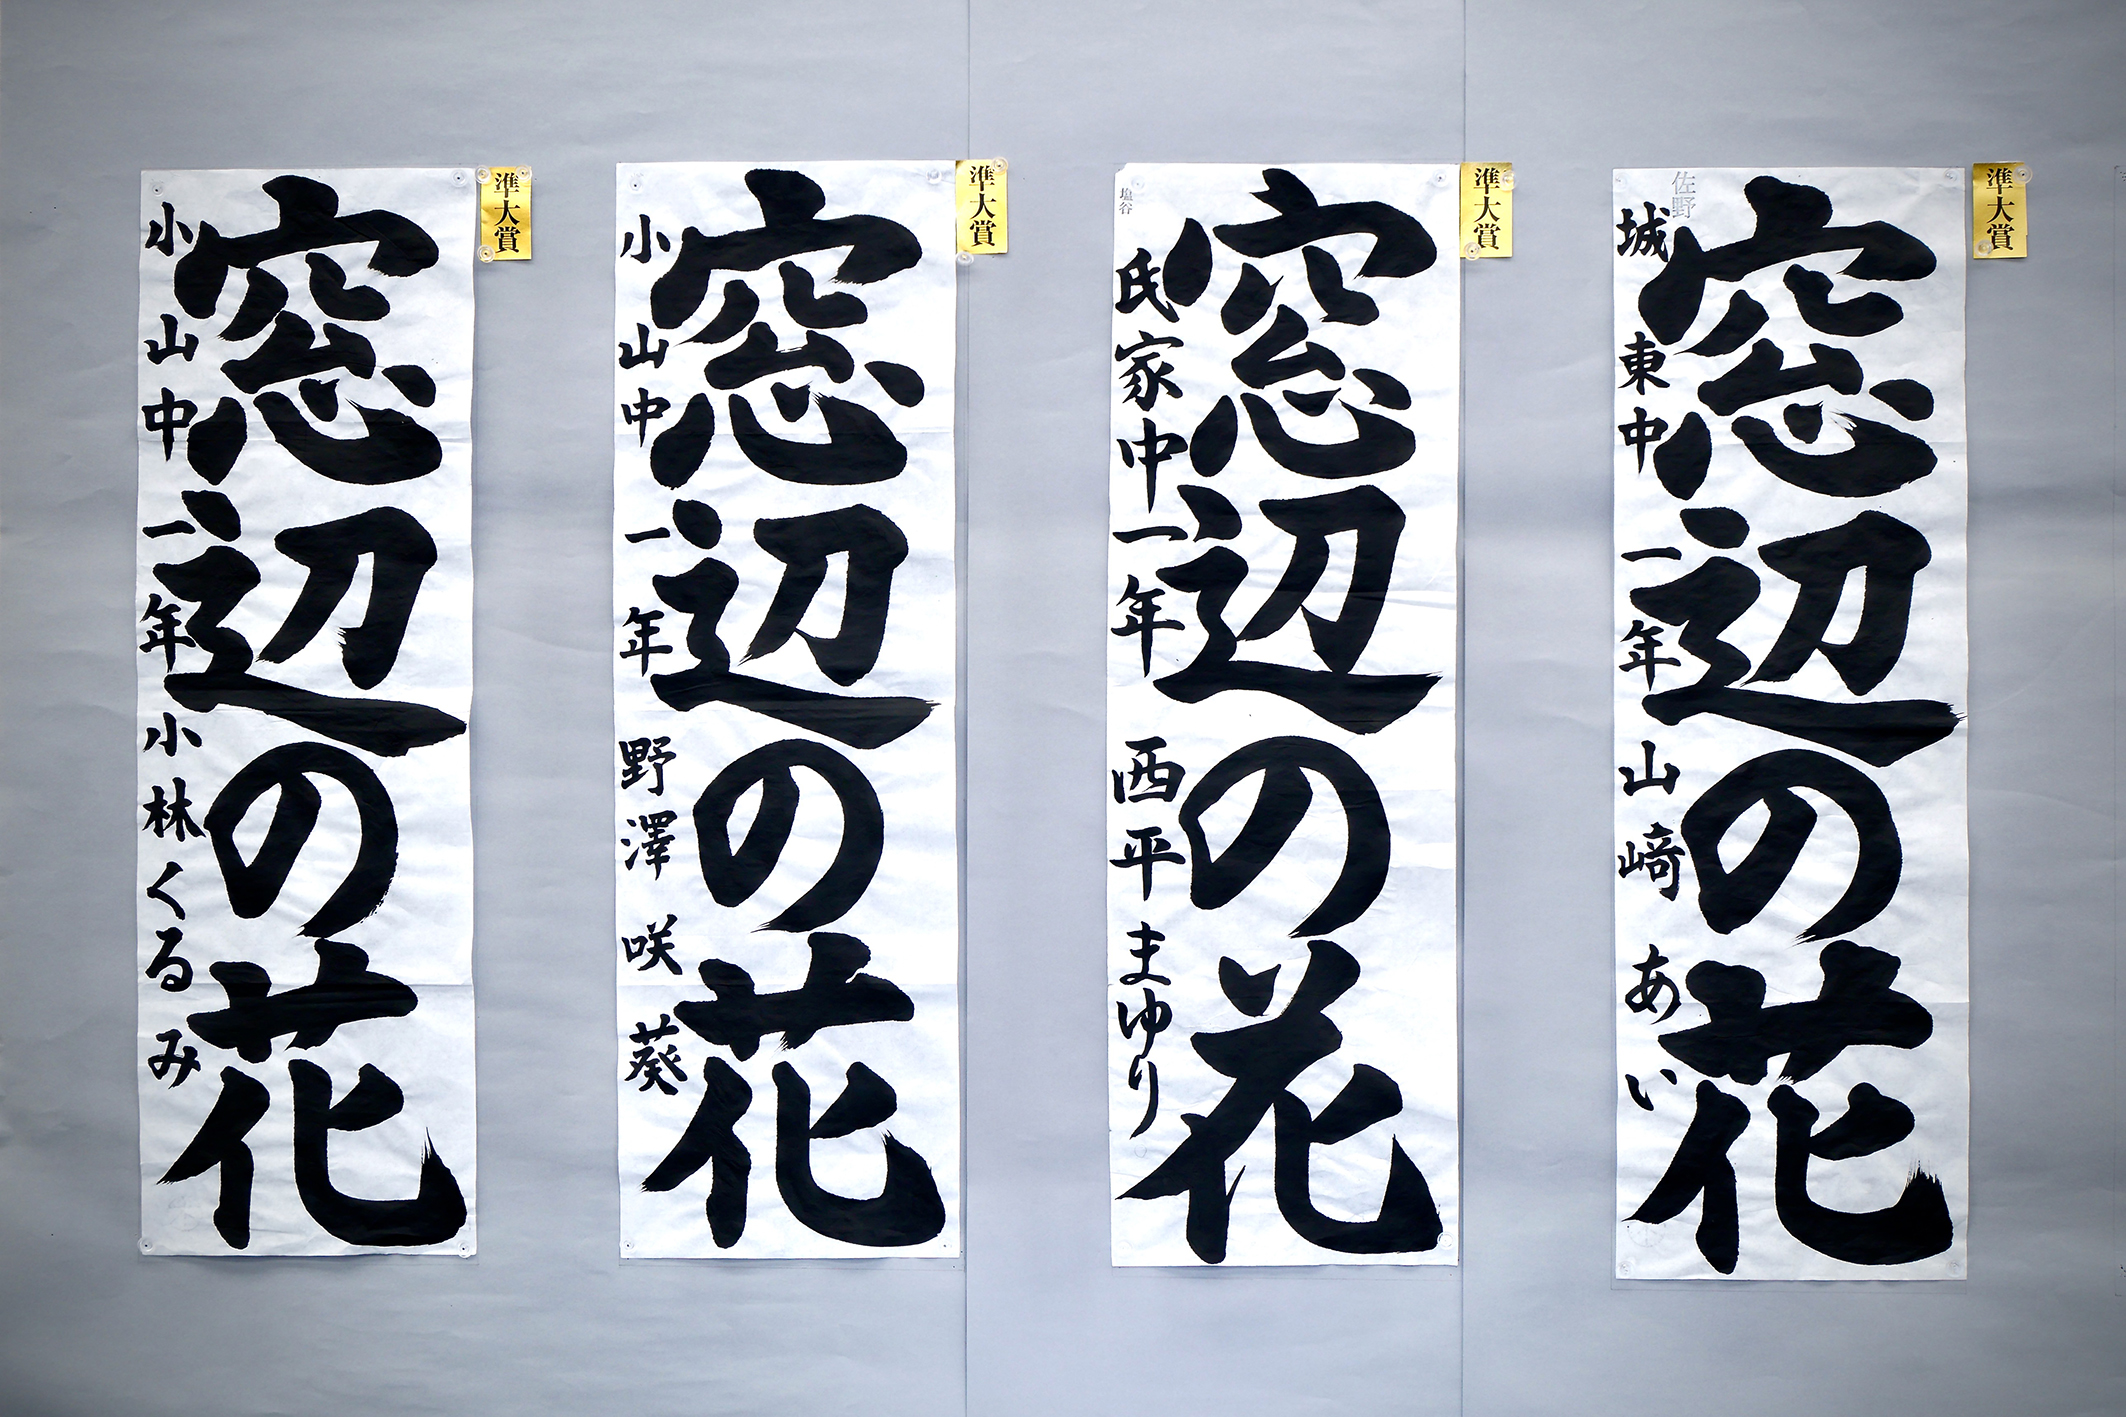 準大賞
窓辺の花
小山中一年小林くるみ
準大賞
窓辺の花
小山中一年野澤咲葵
準大賞
塩谷
窓辺の花
氏家中一年西平まゆり
準大賞
佐野
窓辺の花
城東中一年山﨑あい